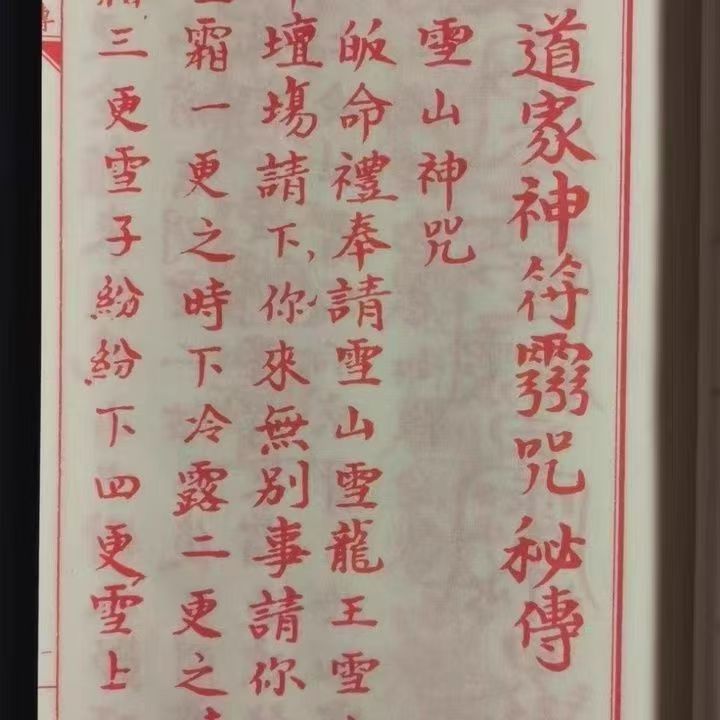 道家神符靈咒秘傳
雪山神咒
皈命禮奉請雪山雪龍王雪
壇塲請下你來無別事請你
霜一更之時下冷露二更之
三更雪子紛紛下四更雪上